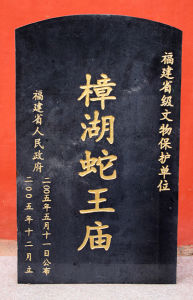 福建省级文物保护单位
樟湖蛇王庙
福建省人民政府
二00五年五月十一日公布
二00五年十二月立